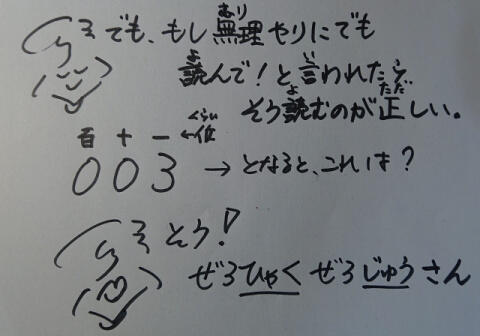 でも、もし無理やりにでも
読んで！と言われたら、
そう読むのが正しい。
百 十 一 ←位
003 → となると、これは？
そう！
ぜろひゃくぜろじゅうさん